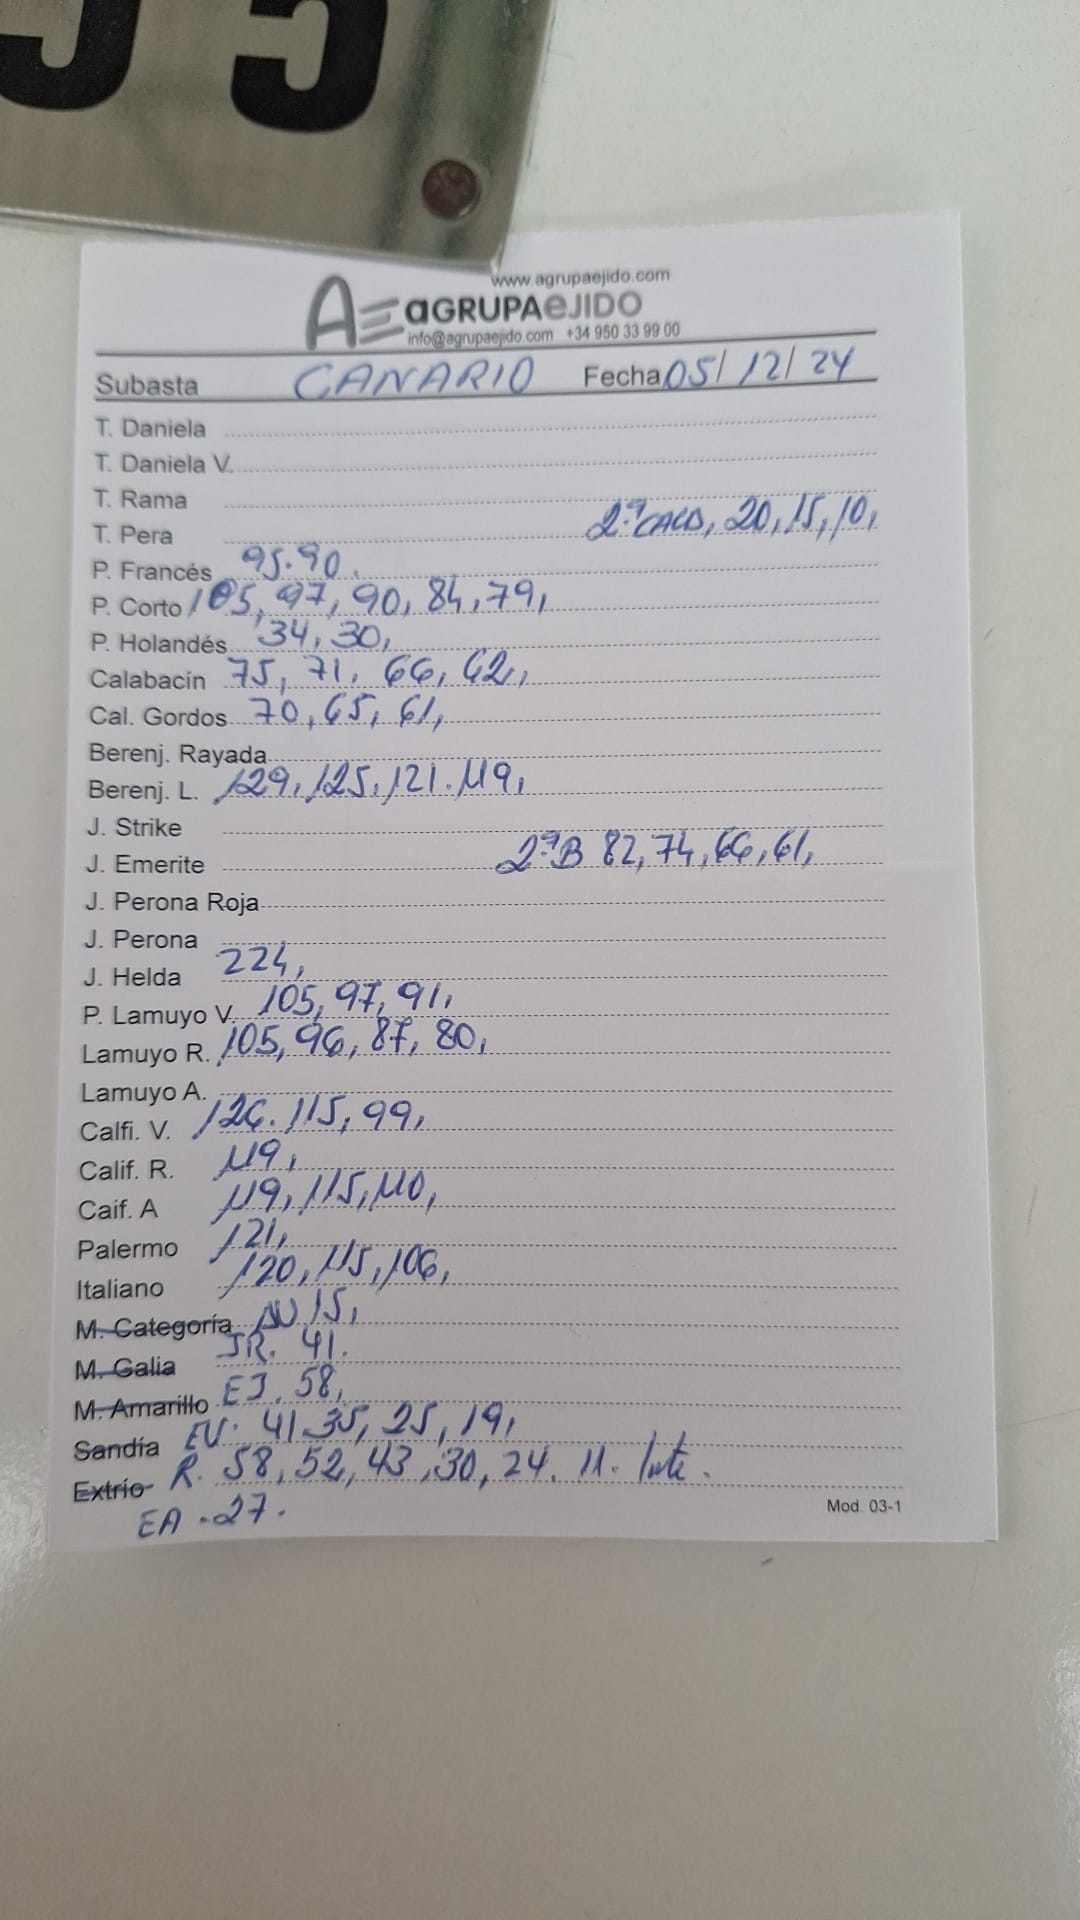 55
www.agrupaejido.com
AE aGRUPAeJIDO
info@agrupaejido.com +34 950 33 99 00
Subasta CANARIO Fecha 05/12/24
T. Daniela
T. Daniela V.
T. Rama
T. Pera 2.ª CALD, 20, 15, 10,
P. Francés 95. 90.
P. Corto 105, 97, 90, 84, 79,
P. Holandés 34, 30,
Calabacín 75, 71, 66, 62,
Cal. Gordos 70, 65, 61,
Berenj. Rayada
Berenj. L. 129, 125, 121. 119,
J. Strike
J. Emerite 2.ª B 82, 74, 66, 61,
J. Perona Roja
J. Perona
J. Helda 224,
P. Lamuyo V. 105, 97, 91,
Lamuyo R. 105, 96, 87, 80,
Lamuyo A.
Calfi. V. 126. 115, 99,
Calif. R. 119,
Caif. A 119, 115, 110,
Palermo 121,
Italiano 120, 115, 106,
M. Categoría 15,
M. Galia JR. 41.
M. Amarillo EJ. 58,
Sandía EV. 41 35, 25, 19,
Extrío R. 58, 52, 43, 30, 24. 11.
EA . 27.
Mod. 03-1